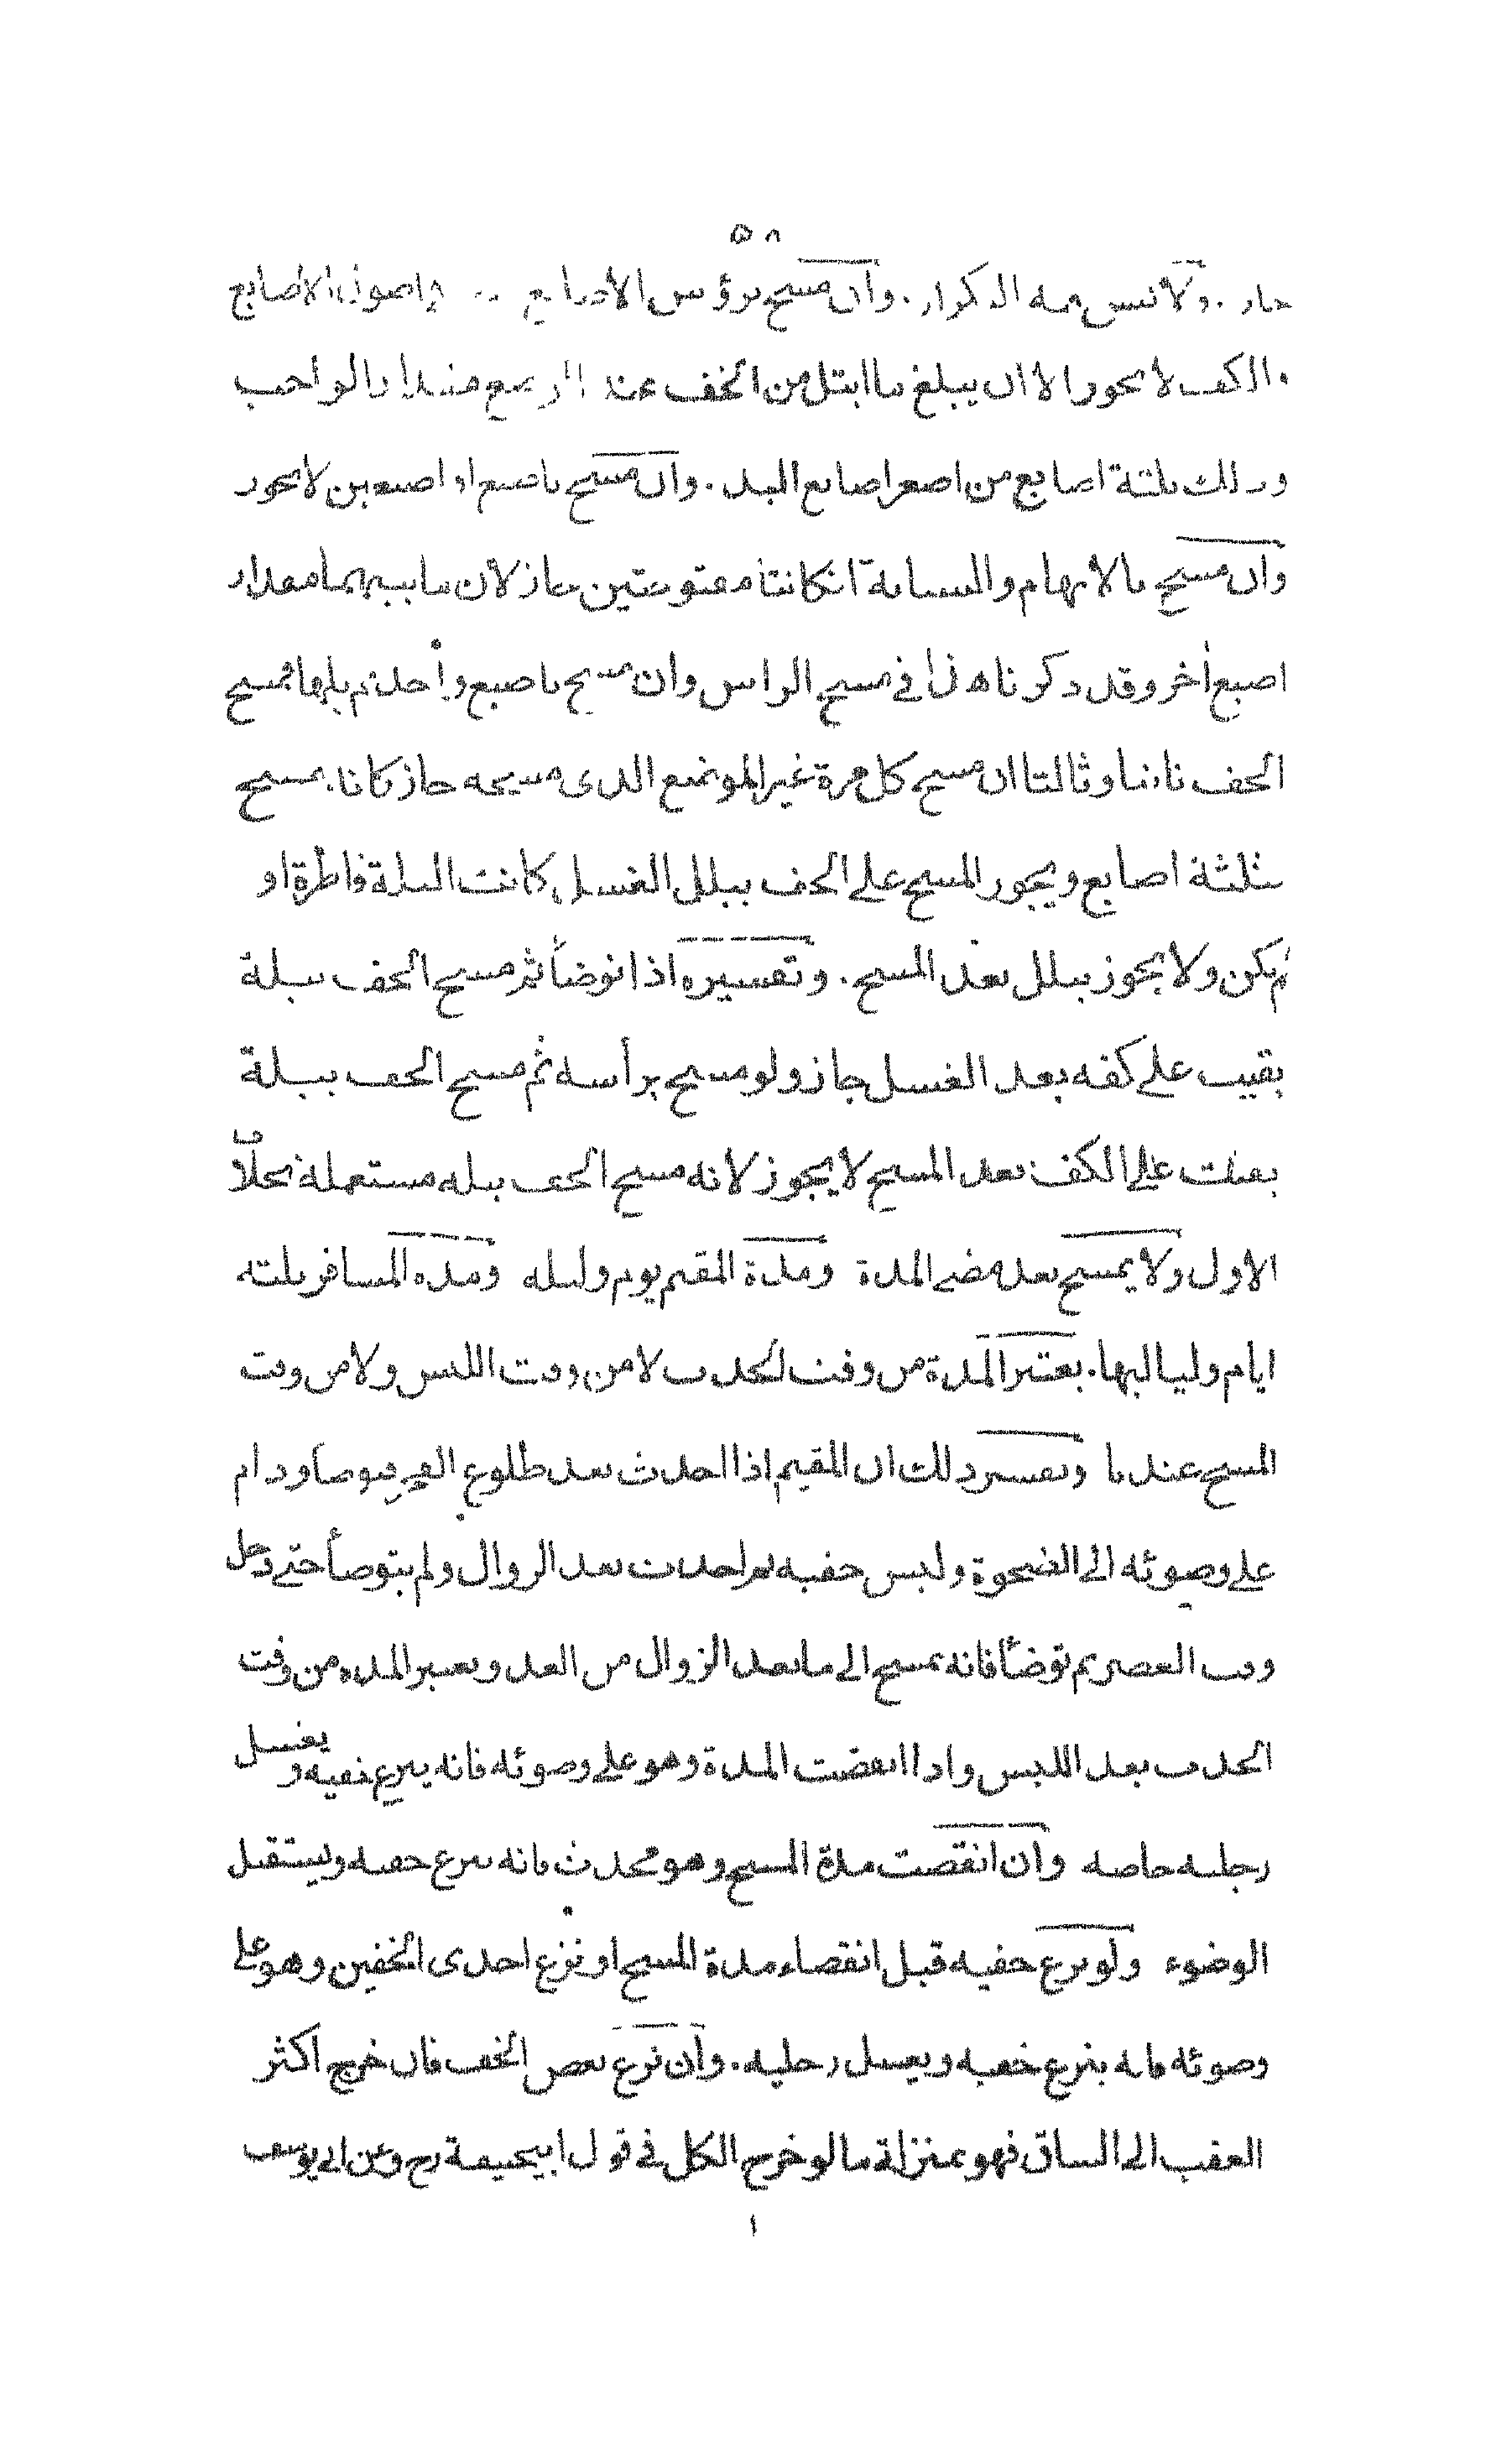 ٥٨
جاز . ولا تسن فيه التكرار . وان مسح برؤس الاصابع واصول الاصابع
والكف لا يجوز الا ان يبلغ ما ابتل من الخف عند الوضع مقدار الواجب
وذلك ثلثة اصابع من اصغر اصابع اليد . وان مسح باصبع او اصبعين لا يجوز
وان مسح بالابهام والسبابة ان كانتا مفتوحتين جاز لان ما بينهما مقدار
اصبع اخر وقد ذكرنا هذا في مسح الراس وان مسح باصبع واحد ثم يلها فمسح
الخف ثانيا وثالثا ان مسح كل مرة غير الموضع الذى مسحه جاز كانه مسح
بثلثة اصابع ويجوز المسح على الخف ببلل الغسل كانت البلة قاطرة او
لم يكن ولا يجوز ببلل بعد المسح . وتفسيره اذا توضأ ثم مسح الخف ببلة
بقيت على كفه بعد الغسل جاز ولو مسح برأسه ثم مسح الخف ببلة
بقيت على الكف بعد المسح لا يجوز لانه مسح الخف ببلة مستعملة بخلاف
الاول ولا يمسح بعد مضى المدة ومدة المقيم يوم وليله ومده المسافر ثلثه
ايام ولياليها . يعتبر المدة من وقت الحدث لا من وقت اللبس ولا من وقت
المسح عندنا وتفسير ذلك ان المقيم اذا احدث بعد طلوع الفجر فتوضأ ودام
على وضوئه الى الضحوة ولبس خفيه ثم احدث بعد الزوال ولم يتوضأ حتى دخل
وقت العصر ثم توضأ فانه يمسح الى ما بعد الزوال من الغد ويعتبر المده من وقت
الحدث بعد اللبس واذا انقضت المدة وهو على وضوئه فانه ينزع خفيه ويغسل
رجليه خاصه وان انقضت مدة المسح وهو محدث فانه ينزع خفيه ويستقبل
الوضوء ولو نزع خفيه قبل انقضاء مدة المسح او نزع احدى الخفين وهو على
وضوئه فانه ينزع خفيه ويغسل رجليه . وان نزع بعض الخف فان خرج اكثر
العقب الى الساق فهو بمنزلة ما لو خرج الكل في قول ابيحنيفة رح وعن ابى يوسف
١